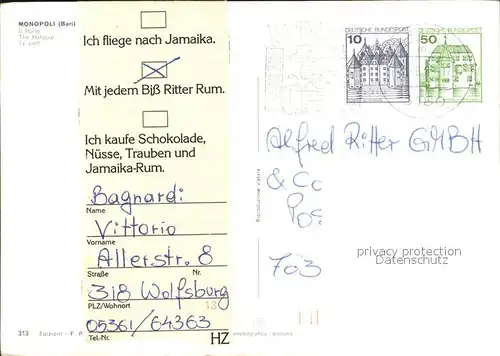 MONOPOLI (Bari)
Il Porto
The Harbour
Le port
Ich fliege nach Jamaika.
Mit jedem Biß Ritter Rum.
Ich kaufe Schokolade,
Nüsse, Trauben und
Jamaika-Rum.
Bagnardi
Name
Vittorio
Vorname
Allerstr. 8
Straße Nr.
318 Wolfsburg
PLZ/Wohnort
05361/64363
Tel.-Nr.
HZ
313 Edizioni
10 DEUTSCHE BUNDESPOST
50 DEUTSCHE BUNDESPOST
Alfred Ritter GMBH
& Co
Pos
703
privacy protection
Datenschutz